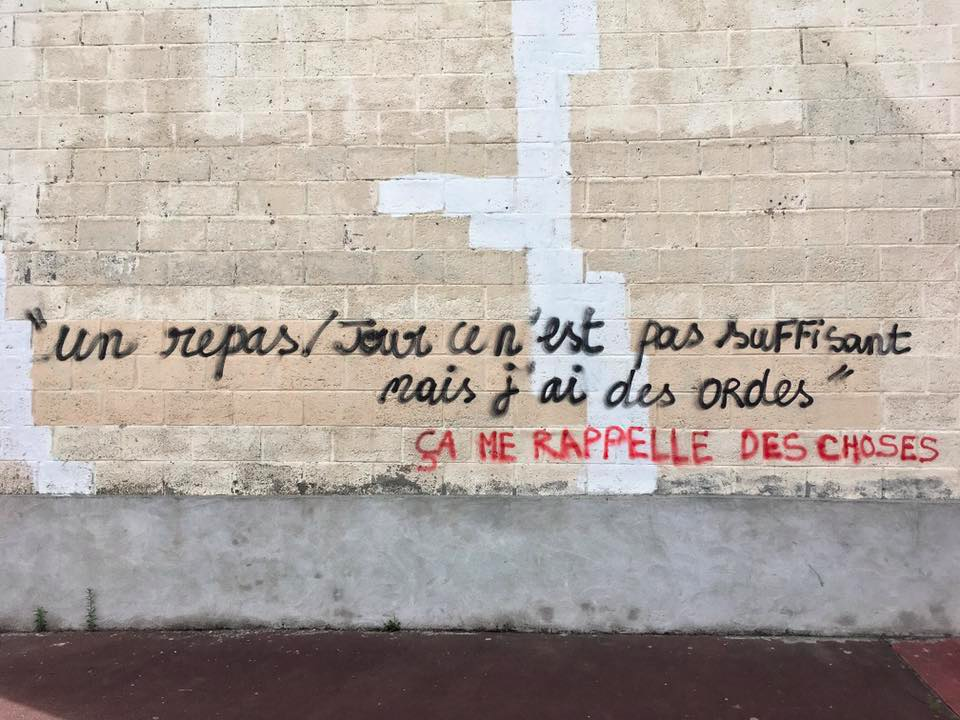 "un repas/Jour ce n'est pas suffisant
mais j'ai des ordes"
ÇA ME RAPPELLE DES CHOSES